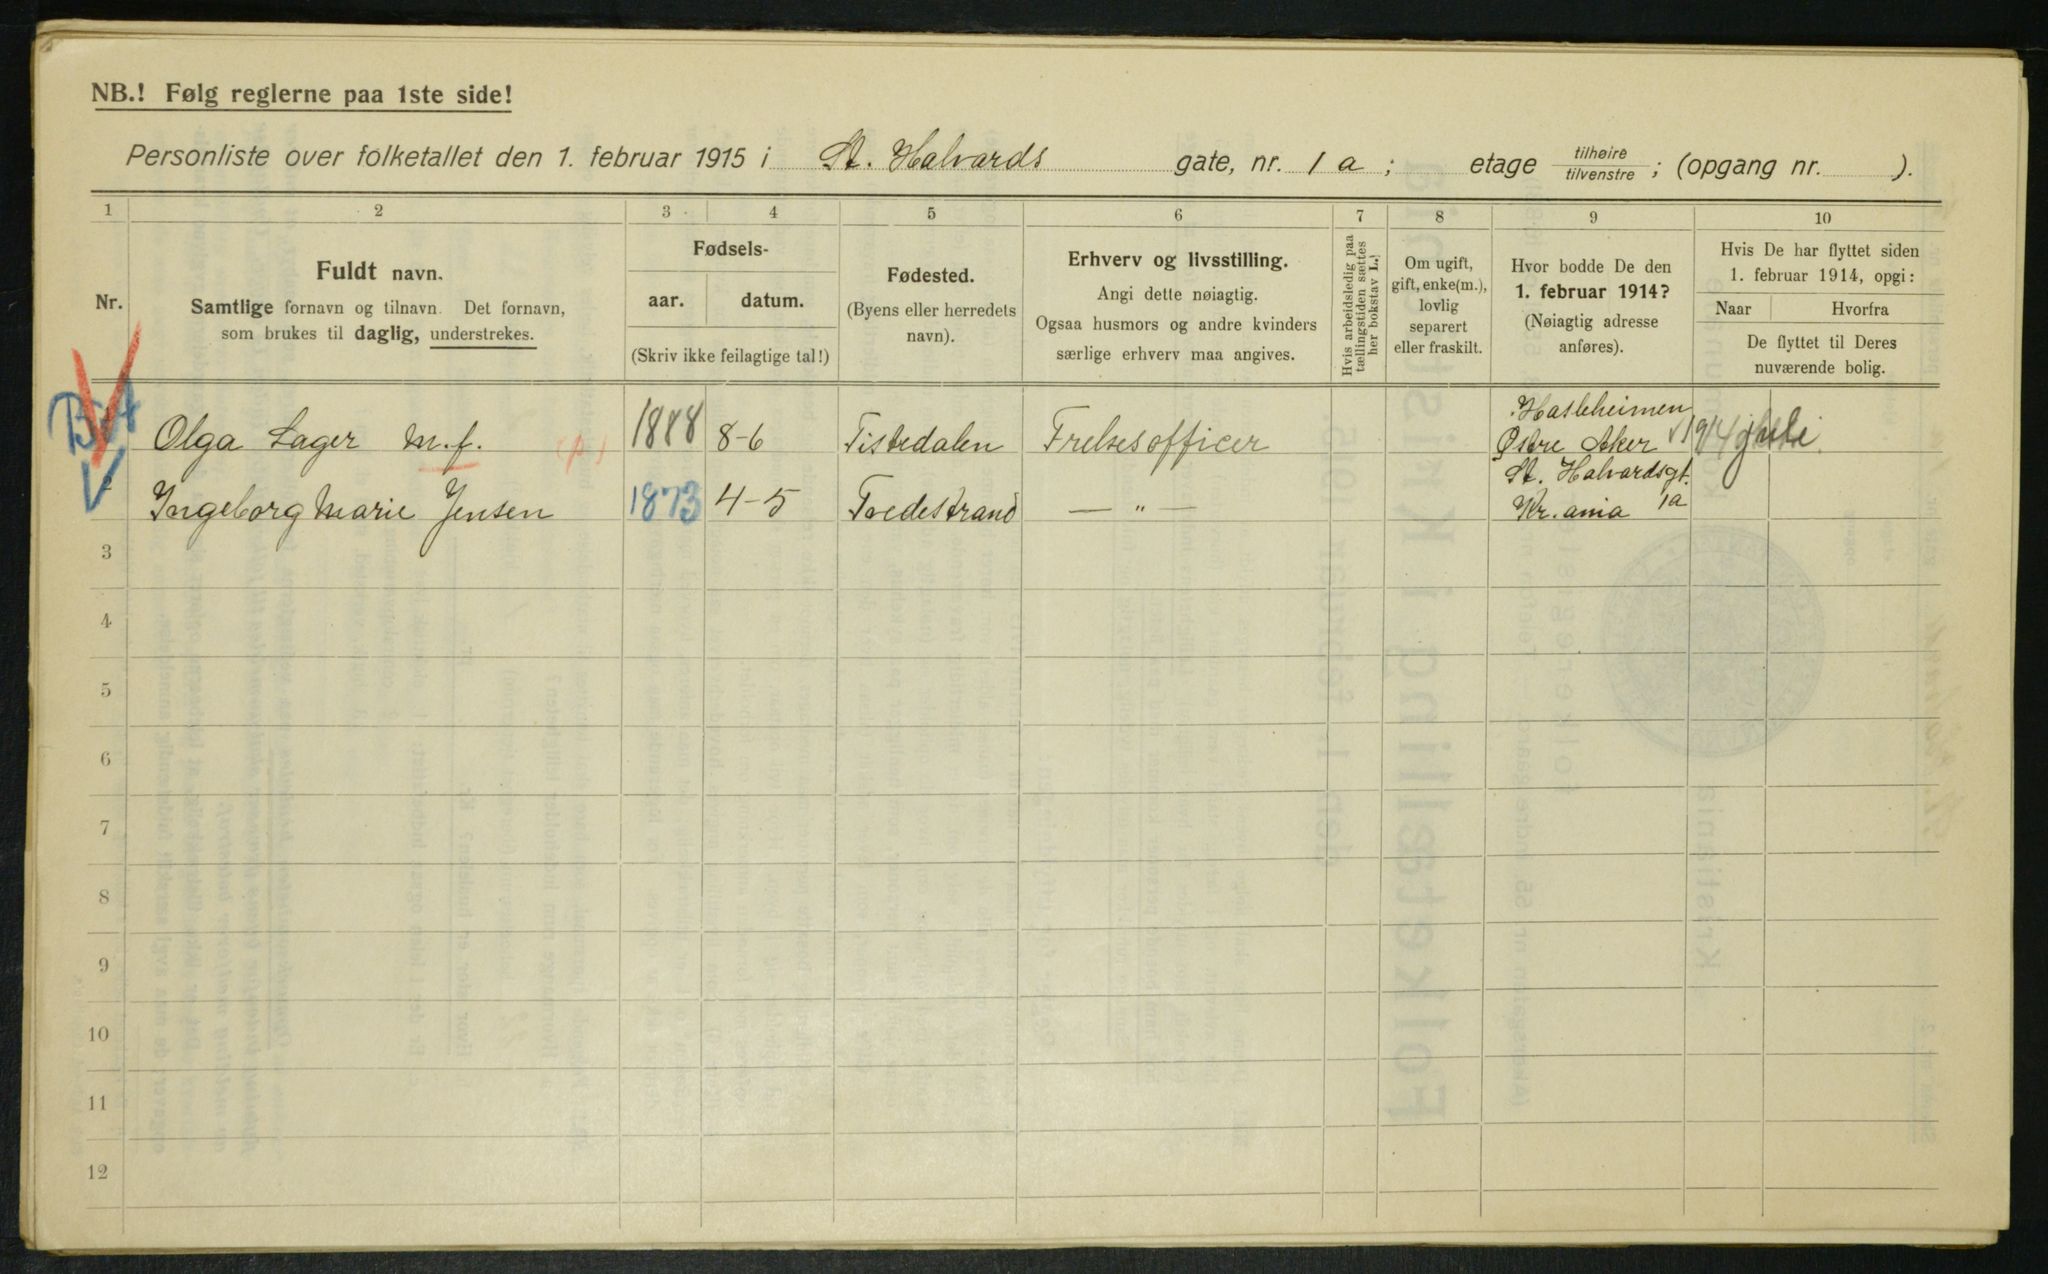 NB.! Følg reglerne paa 1ste side!
Personliste over folketallet den 1. februar 1915 i St. Halvards gate, nr. 1 a; etage tilhøire/tilvenstre; (opgang nr. ).
1 2 3 4 5 6 7 8 9 10
Nr.
Fuldt navn.
Samtlige fornavn og tilnavn. Det fornavn,
som brukes til daglig, understrekes.
Fødsels-
aar. datum.
(Skriv ikke feilagtige tal!)
Fødested.
(Byens eller herredets
navn).
Erhverv og livsstilling.
Angi dette nøiagtig.
Ogsaa husmors og andre kvinders
særlige erhverv maa angives.
Hvis arbeidsledig paa
tællingstiden sættes
her bokstav L.)
Om ugift,
gift, enke(m.),
lovlig
separert
eller fraskilt.
Hvor bodde De den
1. februar 1914?
(Nøiagtig adresse
anføres).
Hvis De har flyttet siden
1. februar 1914, opgi:
Naar Hvorfra
De flyttet til Deres
nuværende bolig.
Olga Lager m.f. (p) 1888 8-6 Tistedalen Frelsesofficer Hasleheimen
Østre Aker 1914 juli
Ingeborg Marie Jensen 1873 4-5 Tvedestrand — " — St. Halvardsgt.
Kr.ania 1a
3
4
5
6
7
8
9
10
11
12